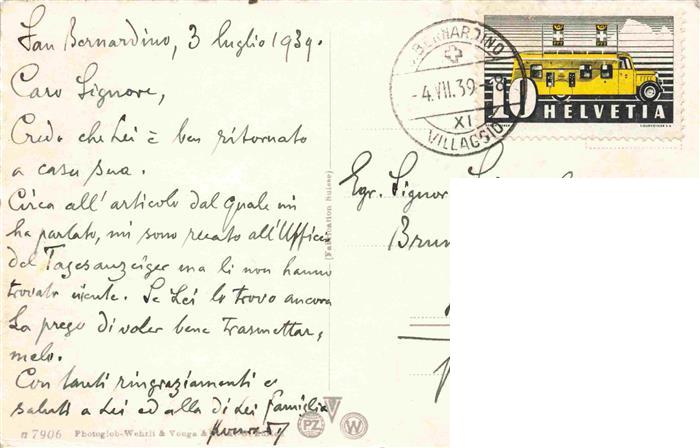 San Bernardino, 3 luglio 1939.
Caro Signore,
Credo che Lei è ben ritornato
a casa sua.
Circa all'articolo dal quale mi
ha parlato, mi sono recato all'Ufficio
del Tagesanzeiger ma li non hanno
trovato niente. Se Lei lo trovo ancora
La prego di voler bene trasmettar,
melo.
Con tanti ringraziamenti e
saluti a Lei ed alla di Lei famiglia
n 7906 Photoglob-Wehrli & Vouga &
(Fabrication Suisse)
PZ V W
S. BERNARDINO
-4.VII.39 - 8
XI
VILLAGGIO
10 HELVETIA
Egr. Signor
Brun